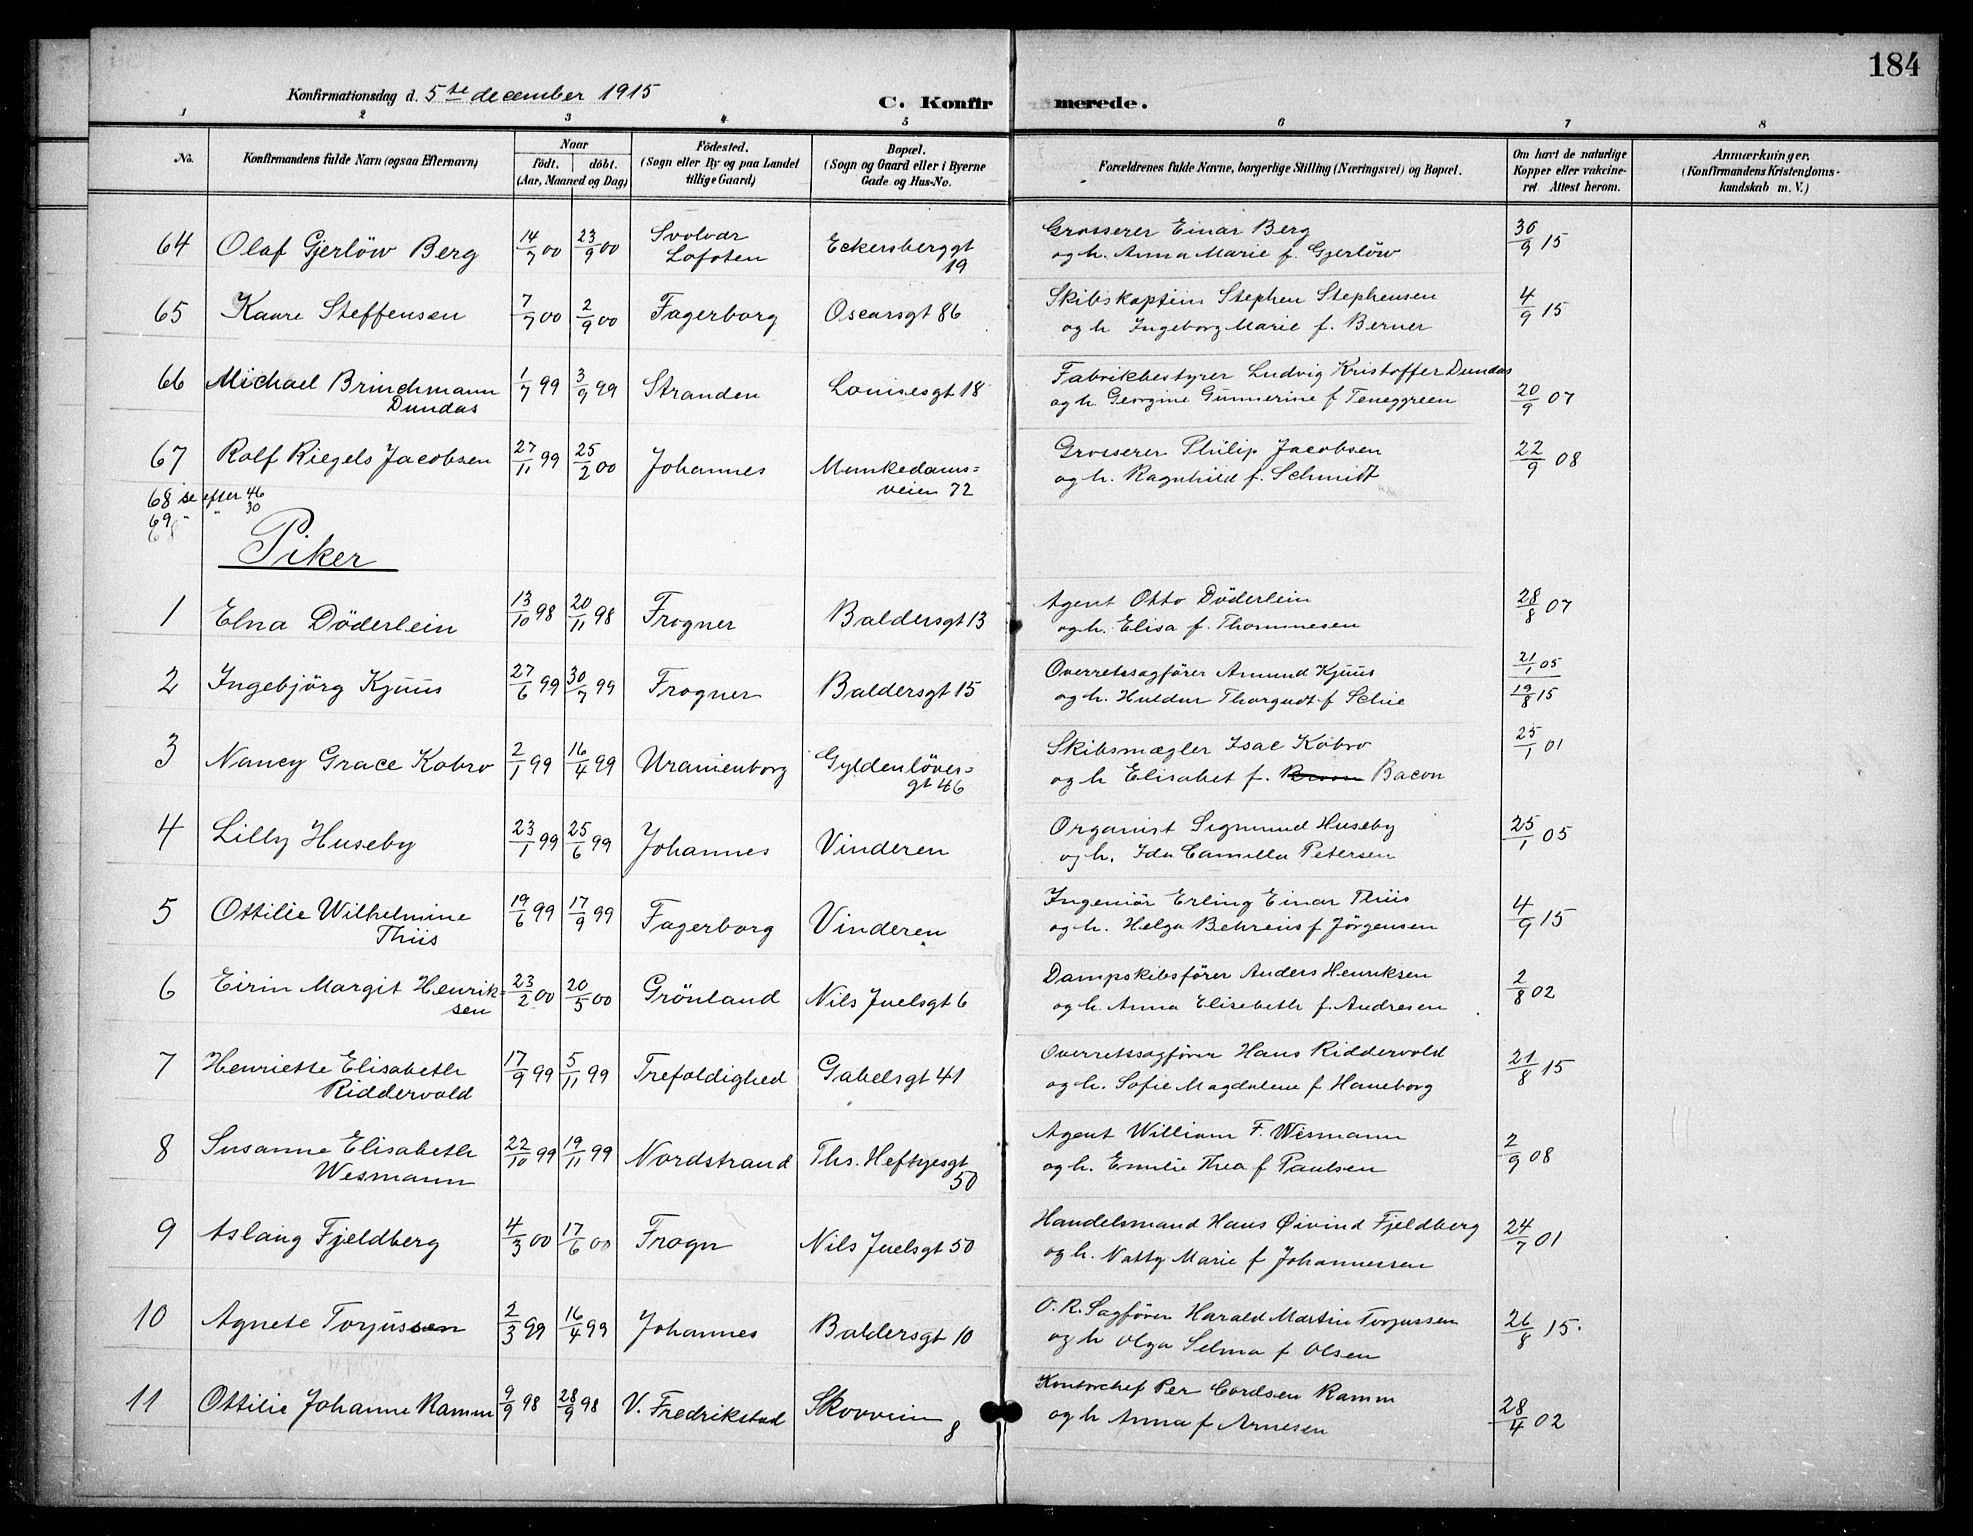 184
Konfirmationsdag d. 5te december 1915
C. Konfir merede.
1 2 3 4 5 6 7 8
No. Konfirmandens fulde Navn (ogsaa Efternavn) Naar födt. döbt. (Aar, Maaned og Dag) Födested. (Sogn eller By og paa Landet tillige Gaard) Bopæl. (Sogn og Gaard eller i Byerne Gade og Hus-No. Forældrenes fulde Navne, borgerlige Stilling (Næringsvei) og Bopæl. Om havt de naturlige Kopper eller vakcineret. Attest herom. Anmærkninger. (Konfirmandens Kristendomskundskab m. V.)
64 Olaf Gjerlöw Berg 14/7 00 23/9 00 Svolvær Eckersberggt Grosserer Einar Berg 30/9 15
Lofoten 19 og h. Anna Marie f. Gjerlöw
65 Kaare Steffensen 7/7 00 2/9 00 Fagerborg Oscarsgt 86 Skibskaptein Stephen Stephensen 4/9 15
og h Ingeborg Marie f. Berner
66 Michael Brinchmann 1/7 99 3/9 99 Stranden Louisesgt 18 Fabrikbestyrer Ludvig Kristoffer Dundas 20/9 07
Dundas og h. Georgine Gunnerine f Teneggreen
67 Rolf Riegels Jacobsen 27/11 99 25/2 00 Johannes Munkedams= Grosserer Philip Jacobsen 22/9 08
veien 72 og h. Ragnhild f. Schmidt
68 se efter 46
69 " " 30
Piker
1 Elna Döderlein 13/10 98 20/11 98 Frogner Baldersgt 13 Agent Otto Döderlein 28/8 07
og h. Elisa f. Thommesen
2 Ingebjörg Kjuus 27/6 99 30/7 99 Frogner Baldersgt 15 Overretssagförer Amund Kjuus 21/1 05
og h. Huldur Thorgudt f Schie 19/8 15
3 Nancy Grace Kobro 2/1 99 16/4 99 Uranienborg Gyldenlöves= Skibsmægler Isac Kobro 25/1 01
gt 46 og h Elisabet f. Bacon
4 Lilly Huseby 23/1 99 25/6 99 Johannes Vinderen Organist Sigmund Huseby 25/1 05
og h. Ida Camilla Petersen
5 Ottilie Wilhelmine 19/6 99 17/9 99 Fagerborg Vinderen Ingeniör Erling Einar Thiis 4/9 15
Thiis og h. Helga Behrens f Jörgensen
6 Eirin Margit Henrik= 23/2 00 20/5 00 Grönland Nils Juelsgt 6 Dampskibsförer Anders Henriksen 2/8 02
sen og h. Anna Elisebeth f. Andresen
7 Henriette Elisabeth 17/9 99 5/11 99 Trefoldighed Gabelsgt 41 Overretssagförer Hans Riddervold 21/8 15
Riddervold og h. Sofie Magdalene f Haneborg
8 Susanne Elisabeth 22/10 99 19/11 99 Nordstrand Ths. Heftyesgt Agent William F. Wesmann 2/9 08
Wesmann 50 og h. Emilie Thea f Paulsen
9 Aslaug Fjeldberg 4/3 00 17/6 00 Frogn Nils Juelsgt 50 Handelsmand Hans Øivind Fjeldberg 24/7 01
og h. Natty Marie f Johannessen
10 Agnete Torjussen 2/3 99 16/4 99 Johannes Baldersgt 10 O. R. Sagförer Harald Martin Torjussen 26/8 15.
og h Olga Selma f Olsen
11 Ottilie Johanne Ramm 9/9 98 28/9 98 V. Fredrikstad Skovvein Kontorchef Per Cordsen Ramm 28/4 02
8 og h Anna f Arnesen